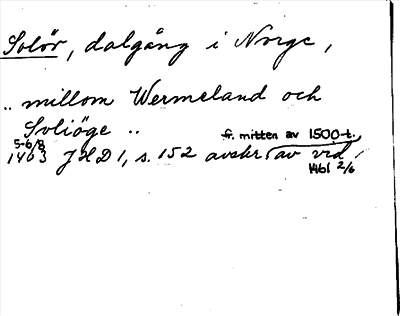 Solör, dalgång i Norge,
.. millom Wermeland och
Soliöge ..
fr. mitten av 1500-t.
5-6/8
1463 JHD 1, s. 152 avskr av vid
1461 2/6